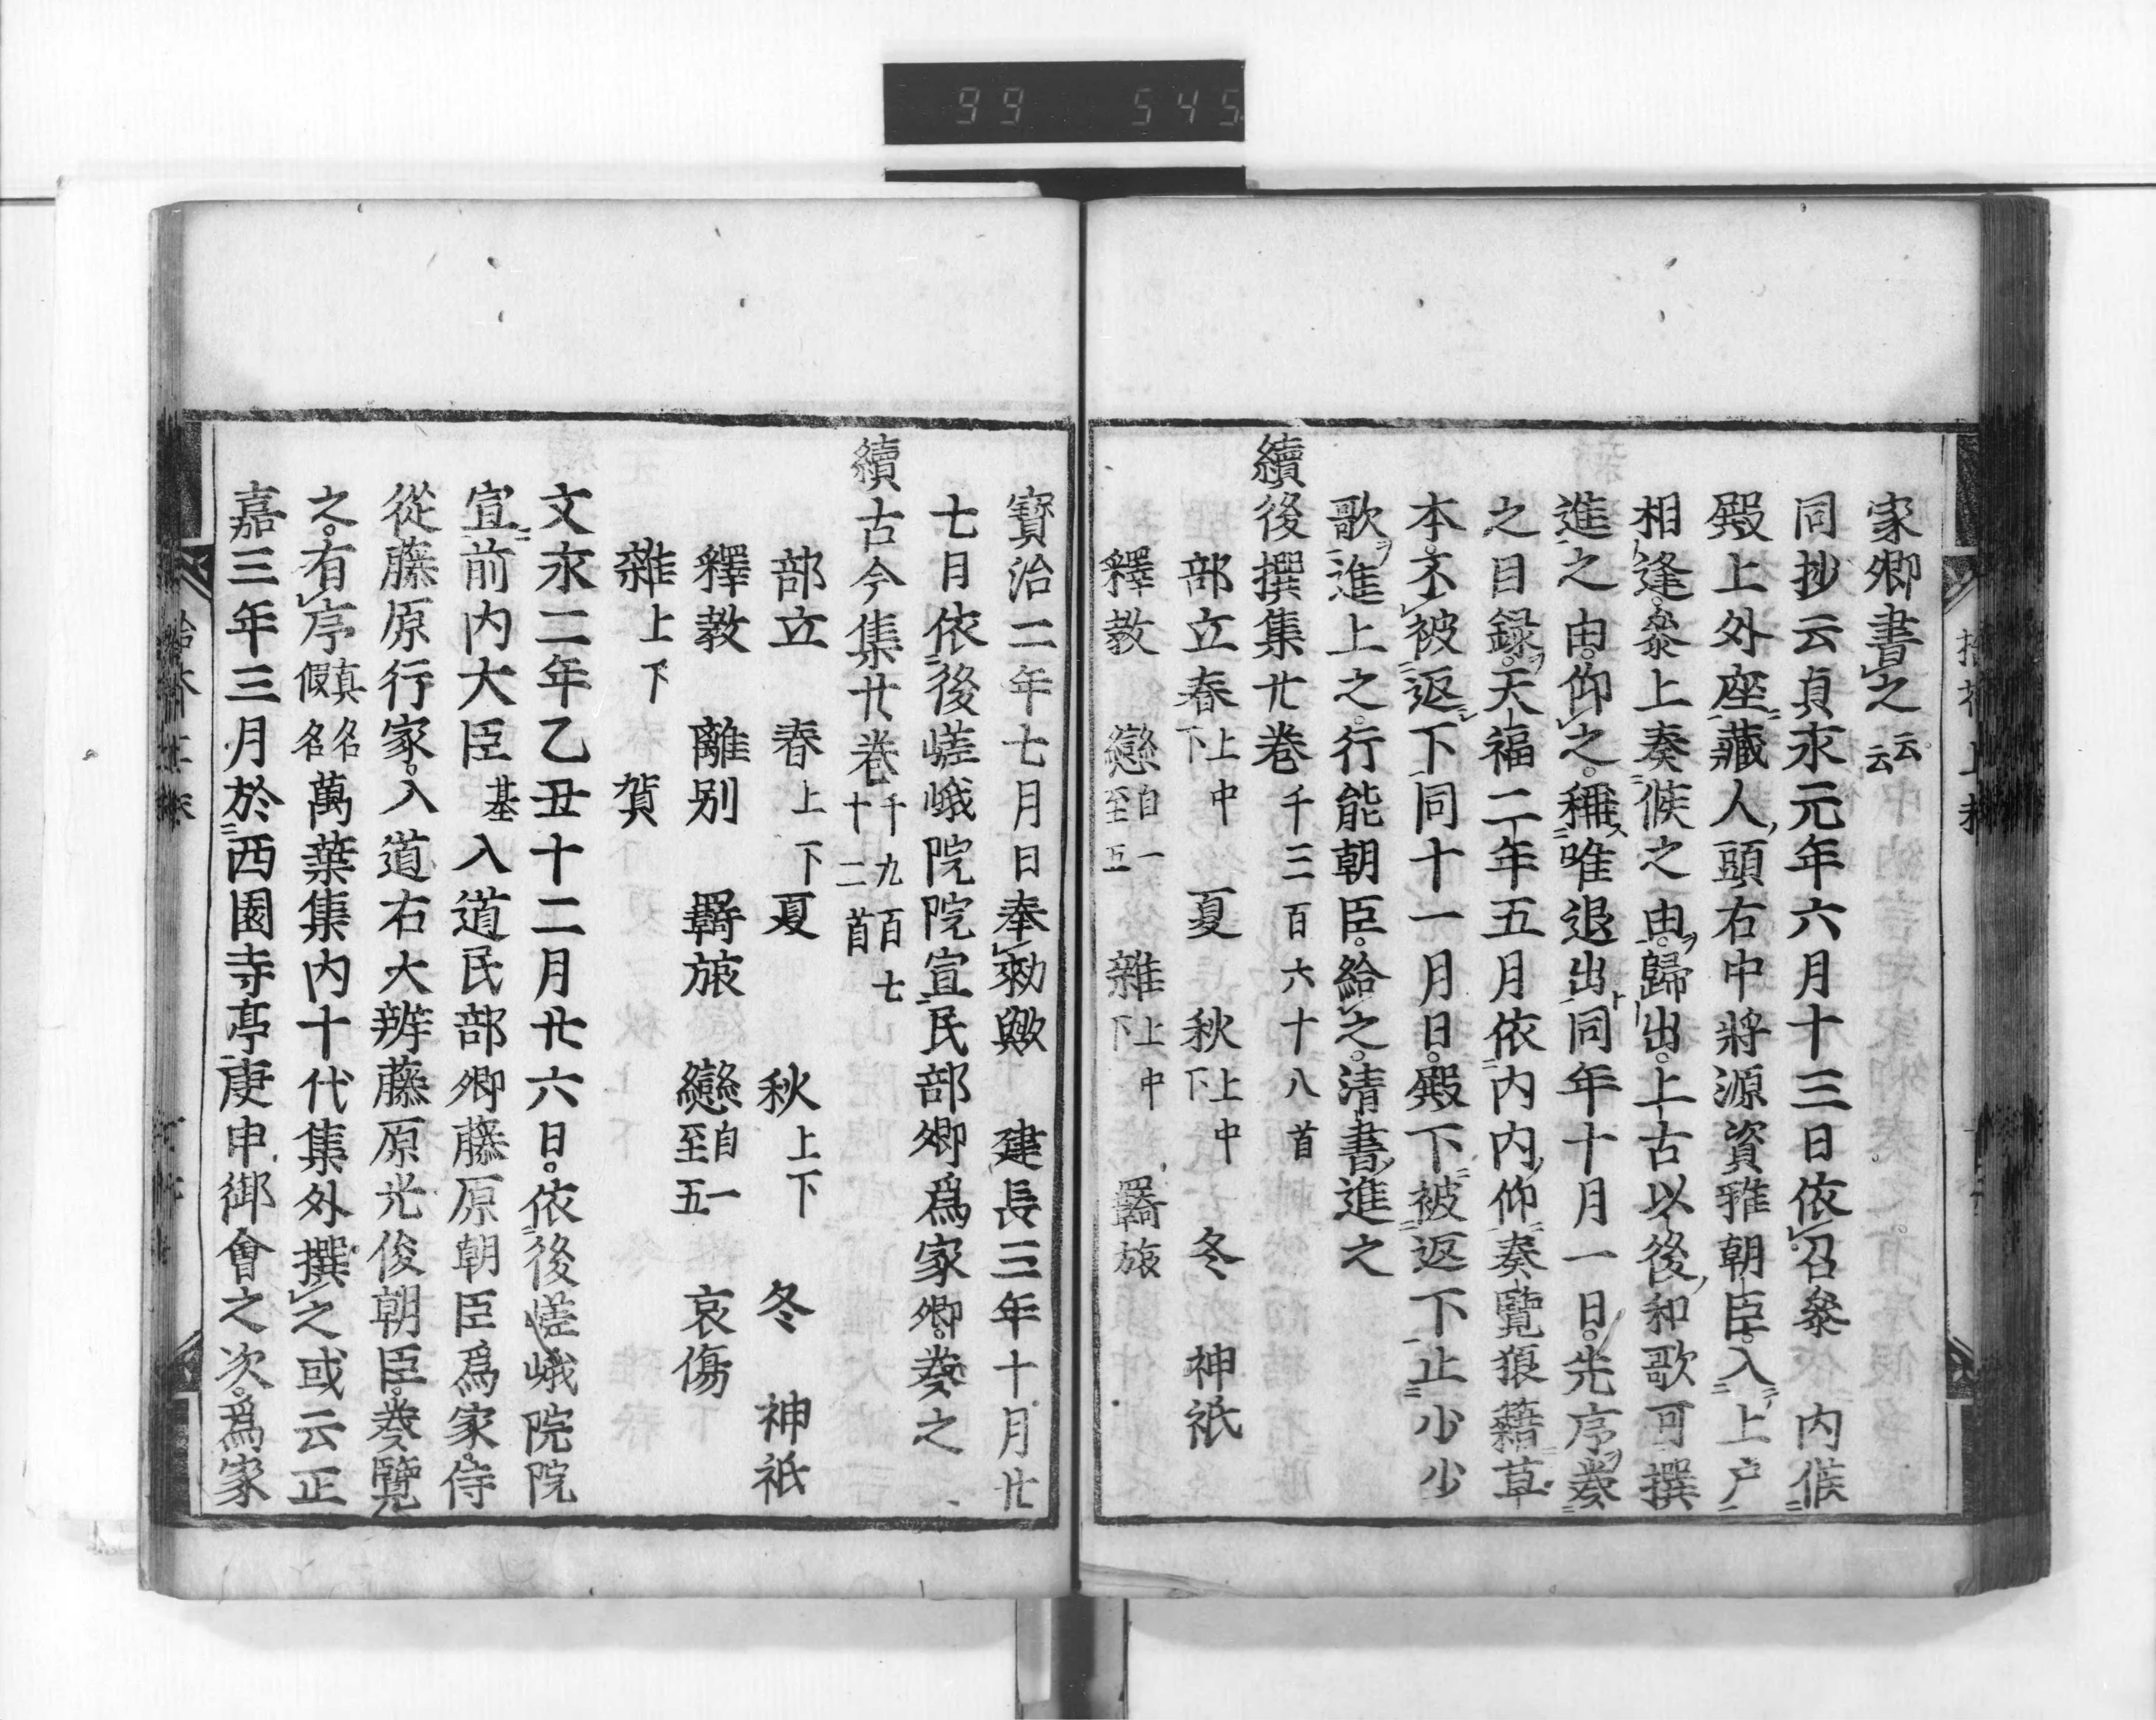 99 545
家卿書之云云
同抄云貞永元年六月十三日依召參 内候
殿上外座藏人頭右中將源資雅朝臣入上戸
相逢參上奏候之由歸出上古以後和歌可撰
進之由仰之稱唯退出同年十月一日先序奏
之目録天福二年五月依内内仰奏覽狼藉草
本不被返下同十一月日殿下被返下止少少
歌進上之行能朝臣給之清書進之
續後撰集廿巻千三百六十八首
部立春上中下 夏 秋上中下 冬 神祇
釋教 戀自一至五 雜上中下 羇旅
寳治二年七月日奉勅歟 建長三年十月廿
七月依後嵯峨院院宣民部卿爲家卿奏之
續古今集廿巻千九百七十二首
部立 春上下 夏 秋上下 冬 神祇
釋教 離別 羇旅 戀自一至五 哀傷
雜上下 賀
文永二年乙丑十二月廿六日依後嵯峨院院
宣前内大臣基入道民部卿藤原朝臣爲家侍
從藤原行家入道右大辨藤原光俊朝臣奏覽
之有序真名假名萬葉集内十代集外撰之或云正
嘉三年三月於西園寺亭庚申御會之次爲家